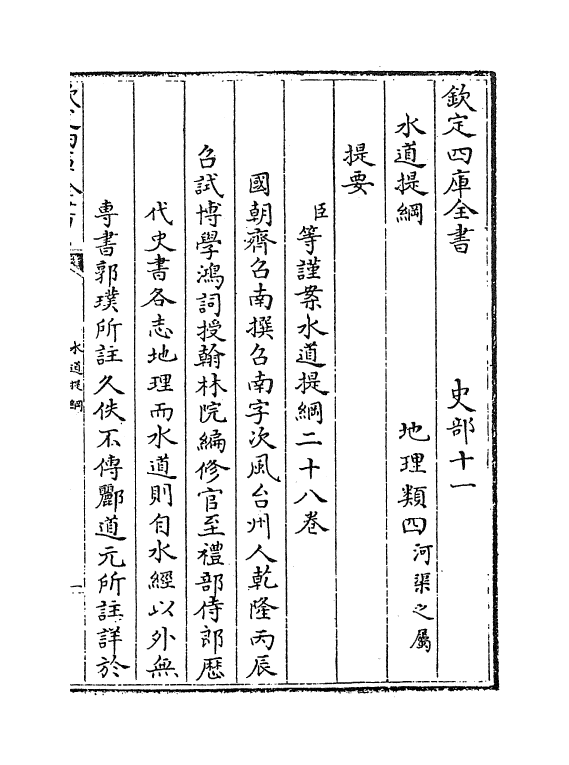 欽定四庫全書　史部十一
水道提綱　地理類四河渠之屬
提要
臣等謹案水道提綱二十八卷
國朝齊召南撰召南字次風台州人乾隆丙辰
召試博學鴻詞授翰林院編修官至禮部侍郎歴
代史書各志地理而水道則自水經以外無
専書郭璞所註久佚不傳酈道元所註詳於
水道提綱
一